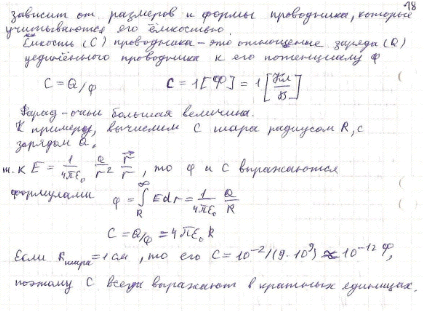 18
зависит от размеров и формы проводника, которые
учитываются его ёмкостью.
Ёмкость (C) проводника – это отношение заряда (Q)
уединённого проводника к его потенциалу φ
C = Q/φ   C = 1[Ф] = 1[Кл/В]
Фарад – очень большая величина.
К примеру, вычислим C шара радиусом R, с
зарядом Q.
т.к E = 1/4πε₀ Q/r² r̅/r, то φ и C выражаются
формулами φ = ∫_R^∞ Edr = 1/4πε₀ Q/R
C = Q/φ = 4πε₀R
Если Rшара = 1 см, то его C = 10⁻²/(9·10⁹) ≈ 10⁻¹² Ф,
поэтому C всегда выражают в кратных единицах.